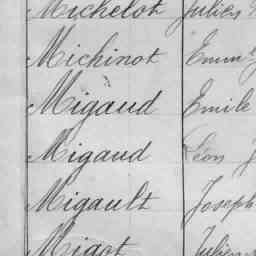 Michelot Jules
Michinot Emm
Migaud Emile
Migaud Léon J
Migault Joseph
Migot Julien